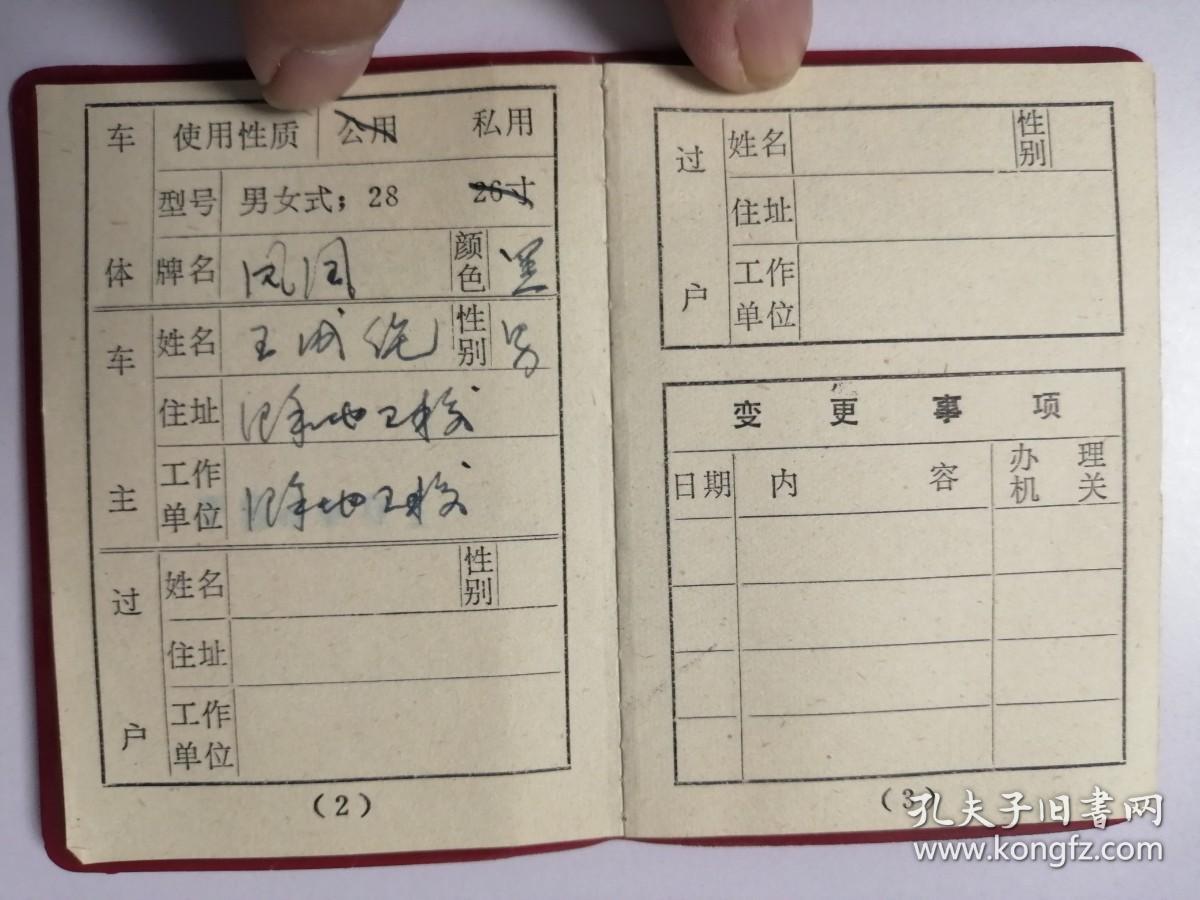 车体
使用性质 公用 私用
型号 男女式；28 26寸
牌名 凤凰 颜色 黑
车主
姓名 王成 性别 男
住址 滁地卫校
工作单位 滁地卫校
过户
姓名 性别
住址
工作单位
(2)
过户
姓名 性别
住址
工作单位
变更事项
日期 内容 办理机关
(3)
孔夫子旧书网
www.kongfz.com